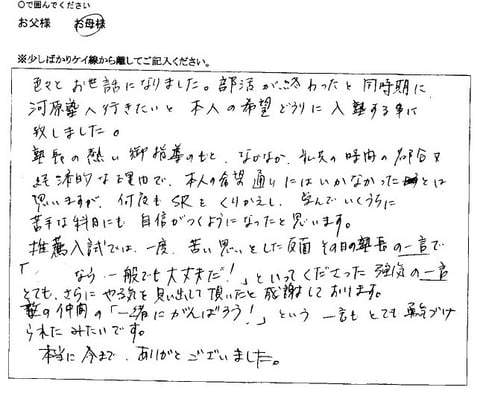 ○で囲んでください
お父様 お母様
※少しばかりケイ線から離してご記入ください。
色々とお世話になりました。部活が終わったと同時期に
河原塾へ行きたいと本人の希望どうりに入塾する事に
致しました。
塾長の熱い御指導のもと、なかなか、私共の時間の都合又
経済的な理由で、本人の希望通りにはいかなかったとは
思いますが、何度もSRをくりかえし、学んでいくうちに
苦手な科目にも自信がつくようになったと思います。
推薦入試では、一度、苦い思いをした反面その日の塾長の一言で
「 なら一般でも大丈夫だ!」といってくださった強気の一言
とても、さらにやる気を見い出して頂いたと感謝しております。
塾の仲間の「一緒にがんばろう!」という一言もとても勇気づけ
られたみたいです。
本当に今まで、ありがとうございました。